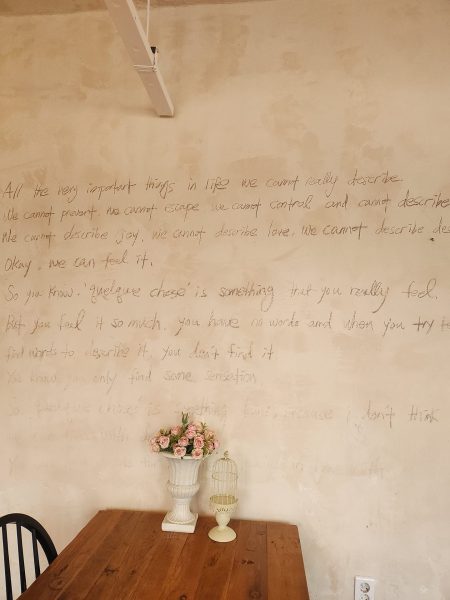 All the very important things in life we cannot really describe
We cannot prevent, we cannot escape we cannot control and cannot describe
We cannot describe joy, we cannot describe love, we cannot describe des
Okay, we can feel it.
So you know. 'quelque chose' is something that you really feel.
But you feel it so much, you have no words and when you try to
find words to describe it, you don't find it
You know, you only find some sensation
So 'quelque chose' is something because I don't think